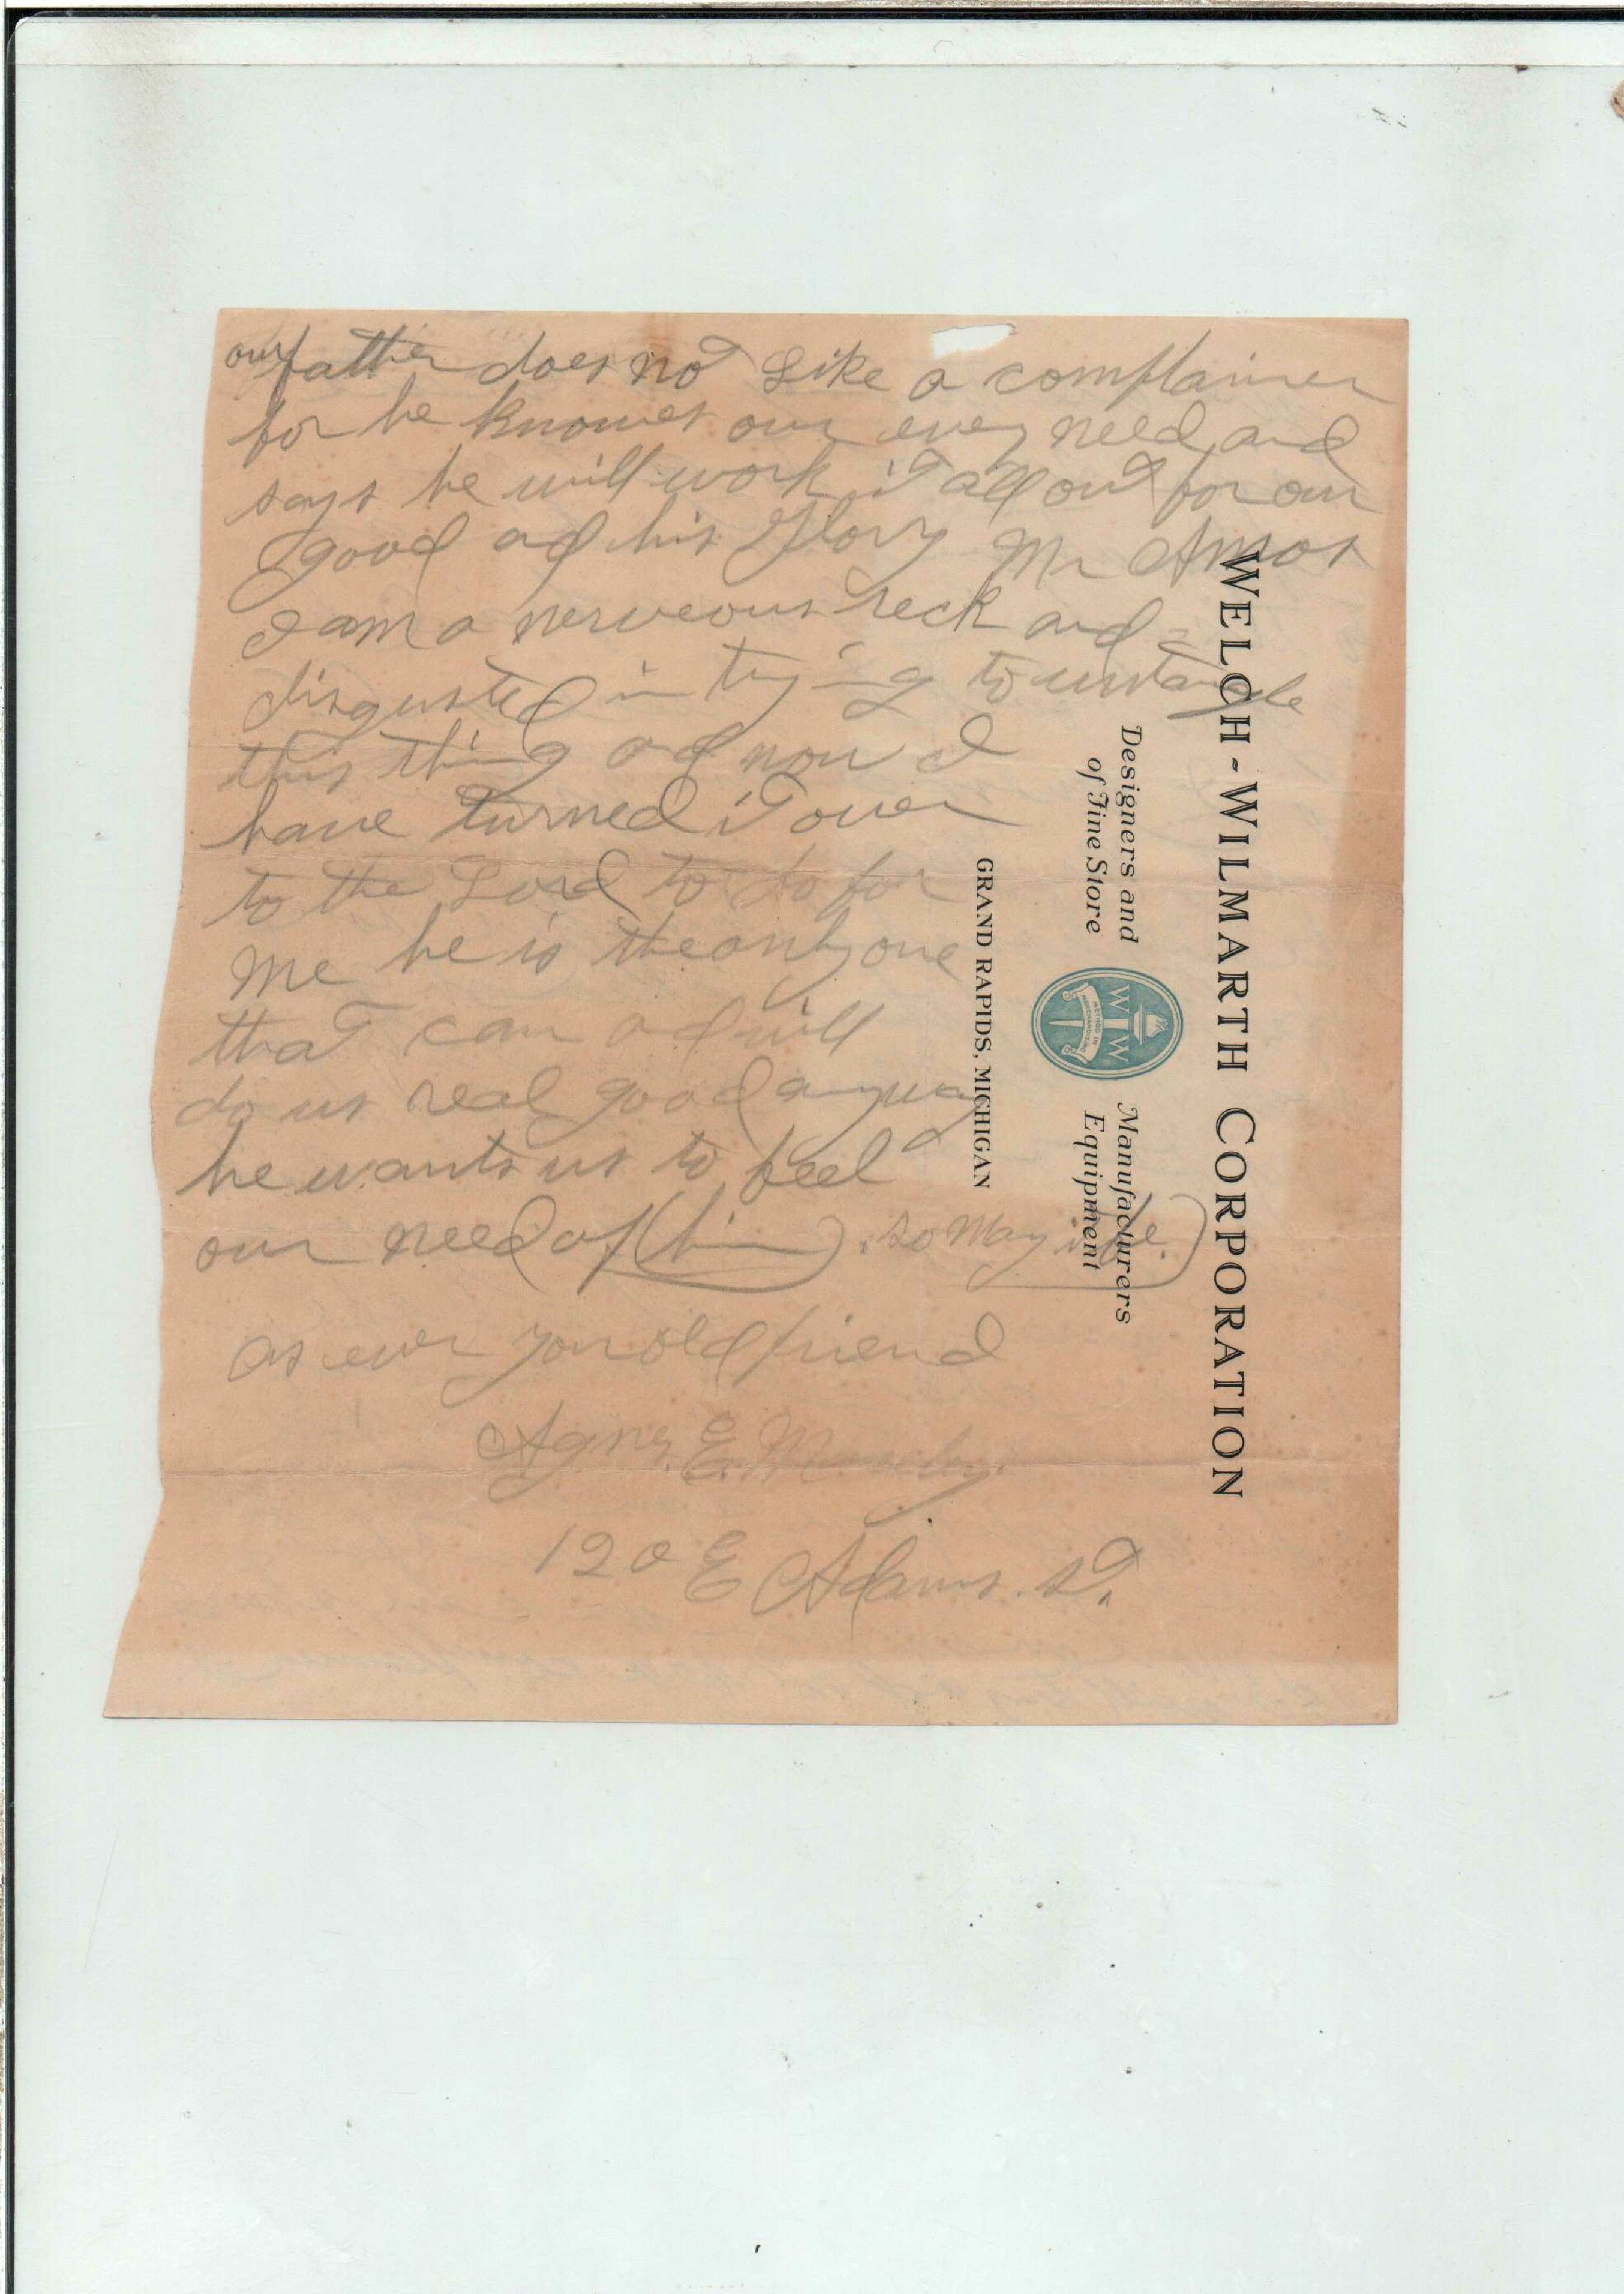 our father does not Like a complainer
for he knowes our every need and
says he will work it all out for our
good ad his Glory Mr Amos
I am a nerveous reck and
disgusted in trying to untangle
this thing ad now I
have turned it over
to the Lord to do for
me he is the only one
that can ad will
do us real good anyway
he wants us to feel
our need of (him). so May it be.
as ever your old friend
Agnes E.
120 E Adams. st.
WELCH-WILMARTH CORPORATION
Designers and Manufacturers
of Fine Store Equipment
W W
METHOD IN
MERCHANDISING
GRAND RAPIDS, MICHIGAN